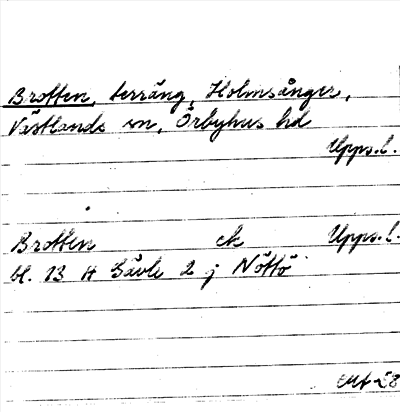 Brotten, terräng, Holmsånger,
Västlands sn, Örbyhus hd
Upps.l.
Brotten ek Upps.l.
bl. 13 H Gävle 2 j Nöttö